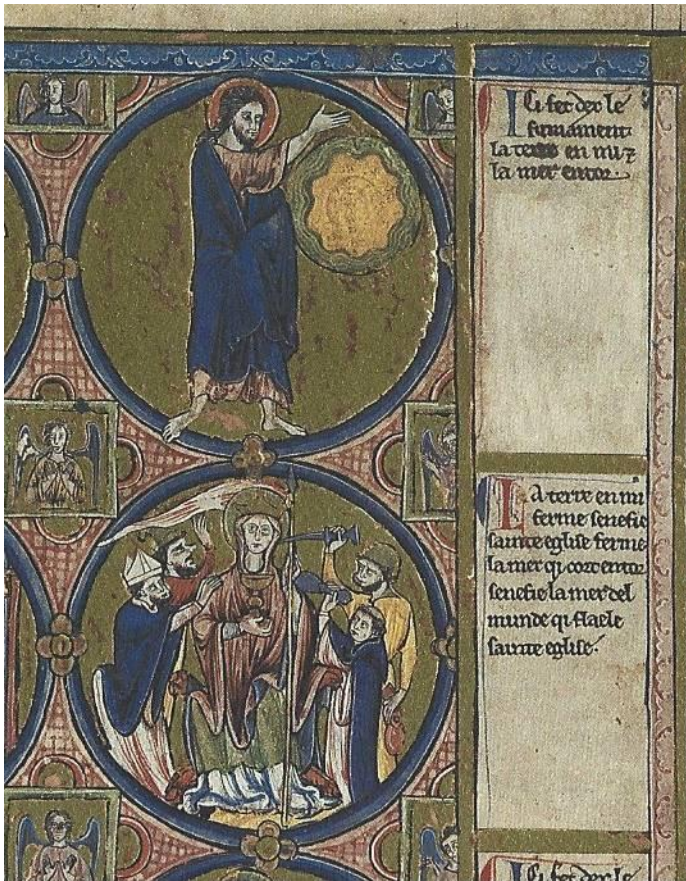 Ici fet dex le
firmament
la terre en mi ⁊
la mer entor.
La terre en mi
ferme senefie
sainte eglise ferme
la mer qi cort entor
senefie la mer del
munde qi flaele
sainte eglise.
Ici fet dex le